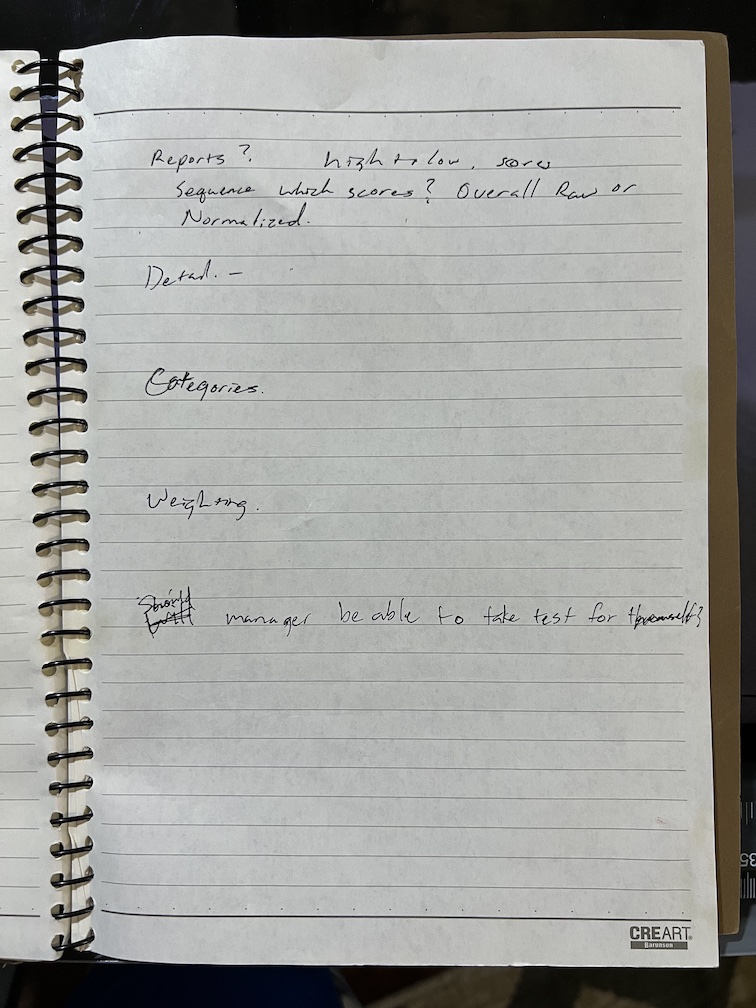 Reports? high to low. scores
Sequence which scores? Overall Raw or
Normalized.
Detail. –
Categories.
Weighting.
Should
manager be able to take test for themself?
CREART
Barunson
35